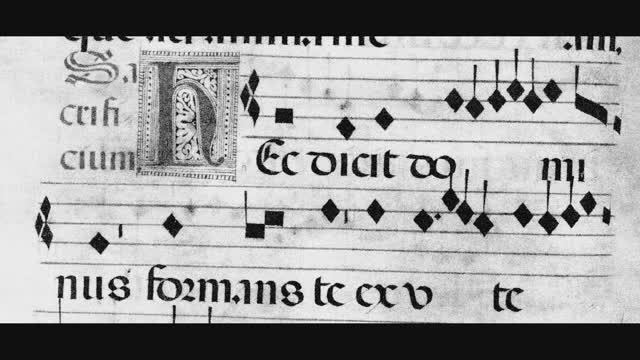 Sa
crifi
cium
HEc dicit do mi
nus formans te ex v te